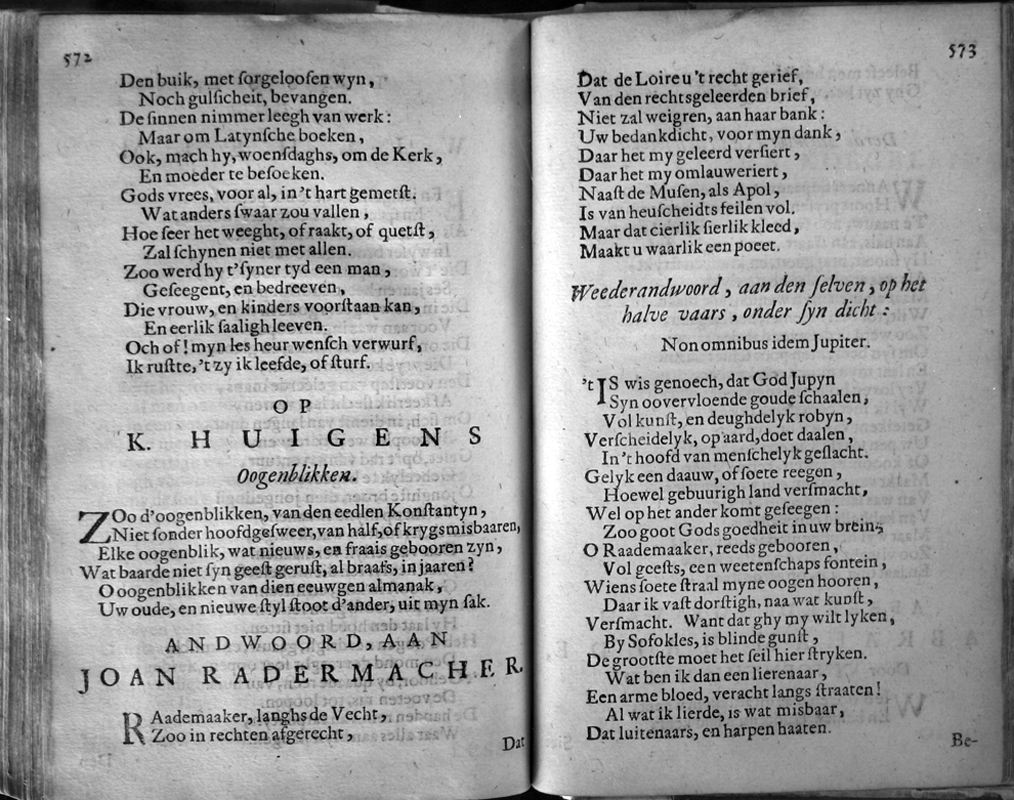 572
Den buik, met ſorgelooſen wyn,
Noch gulſicheit, bevangen.
De ſinnen nimmer leegh van werk:
Maar om Latynſche boeken,
Ook, mach hy, woenſdaghs, om de Kerk,
En moeder te beſoeken.
Gods vrees, voor al, in 't hart gemetſt.
Wat anders ſwaar zou vallen,
Hoe ſeer het weeght, of raakt, of quetſt,
Zal ſchynen niet met allen.
Zoo werd hy t'ſyner tyd een man,
Geſeegent, en bedreeven,
Die vrouw, en kinders voorſtaan kan,
En eerlik ſaaligh leeven.
Och of! myn les heur wenſch verwurf,
Ik ruſtte, 't zy ik leefde, of ſturf.
OP
K. HUIGENS
Oogenblikken.
ZOo d'oogenblikken, van den eedlen Konſtantyn,
Niet ſonder hoofdgeſweer, van half, of krygsmisbaaren,
Elke oogenblik, wat nieuws, en fraais gebooren zyn,
Wat baarde niet ſyn geeſt geruſt, al braafs, in jaaren?
O oogenblikken van dien eeuwgen almanak,
Uw oude, en nieuwe ſtyl ſtoot d'ander, uit myn ſak.
ANDWOORD, AAN
JOAN RADERMACHER.
RAademaaker, langhs de Vecht,
Zoo in rechten afgerecht,
Dat
573
Dat de Loire u 't recht gerief,
Van den rechtsgeleerden brief,
Niet zal weigren, aan haar bank:
Uw bedankdicht, voor myn dank,
Daar het my geleerd verſiert,
Daar het my omlauweriert,
Naaſt de Muſen, als Apol,
Is van heuſcheidts feilen vol.
Maar dat cierlik ſierlik kleed,
Maakt u waarlik een poëet.
Weederandwoord, aan den ſelven, op het
halve vaars, onder ſyn dicht:
Non omnibus idem Jupiter.
'tIS wis genoech, dat God Jupyn
Syn oovervloende goude ſchaalen,
Vol kunſt, en deughdelyk robyn,
Verſcheidelyk, op aard, doet daalen,
In 't hoofd van menſchelyk geſlacht.
Gelyk een daauw, of ſoete reegen,
Hoewel gebuurigh land verſmacht,
Wel op het ander komt geſeegen:
Zoo goot Gods goedheit in uw brein,
O Raademaaker, reeds gebooren,
Vol geeſts, een weetenſchaps fontein,
Wiens ſoete ſtraal myne oogen hooren,
Daar ik vaſt dorſtigh, naa wat kunſt,
Verſmacht. Want dat ghy my wilt lyken,
By Sofokles, is blinde gunſt,
De grootſte moet het ſeil hier ſtryken.
Wat ben ik dan een lierenaar,
Een arme bloed, veracht langs ſtraaten!
Al wat ik lierde, is wat misbaar,
Dat luitenaars, en harpen haaten.
Be-